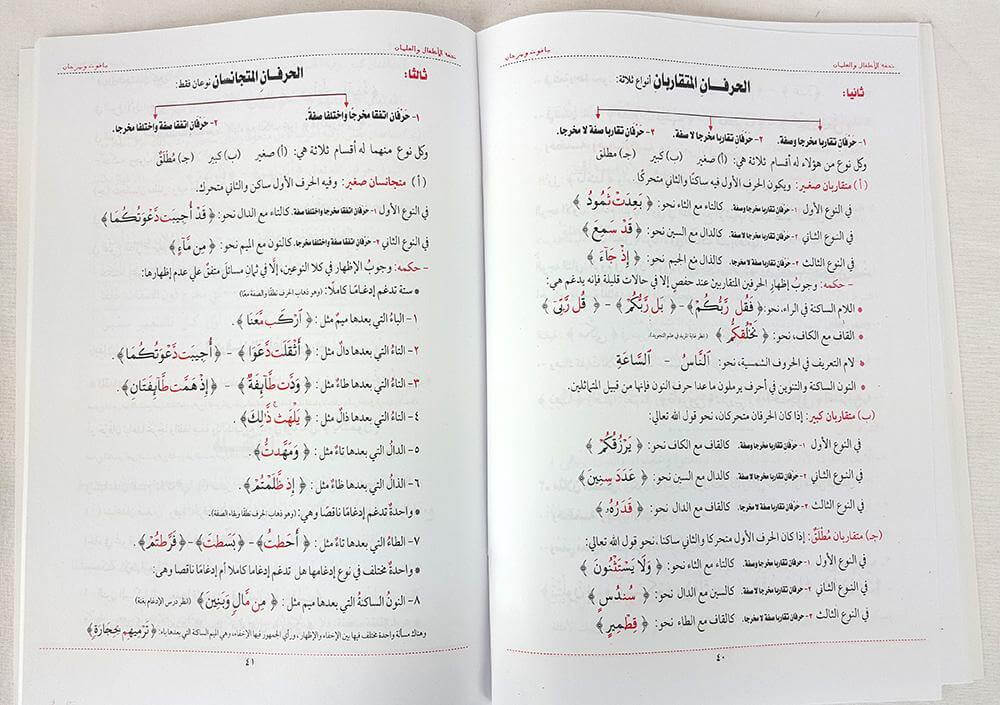 تحفة الأطفال والغلمان
ياقوت ومرجان
ثانيا:
الحرفان المتقاربان أنواع ثلاثة:
١- حَرْفان تقاربا مخرجا وصفة. ٢- حَرْفان تقاربا مخرجا لا صفة. ٣- حَرْفان تقاربا صفة لا مخرجا.
وكل نوع من هؤلاء له أقسام ثلاثة هي: (أ) صغير (ب) كبير (جـ) مطلق
(أ) متقاربان صغير: ويكون الحرف الأول فيه ساكنًا والثاني متحركًا.
في النوع الأول ١- حَرْفان تقاربا مخرجا وصفة. كالتاء مع الثاء نحو: ﴿ بَعِدَتْ ثَمُودُ ﴾
في النوع الثاني ٢- حَرْفان تقاربا مخرجا لا صفة. كالدال مع السين نحو: ﴿ قَدْ سَمِعَ ﴾
في النوع الثالث ٣- حَرْفان تقاربا صفة لا مخرجا. كالذال مع الجيم نحو: ﴿ إِذْ جَآءَ ﴾
- حكمه: وجوبُ إظهار الحرفين المتقاربين عند حفصٍ إلا في حالات قليلة فإنه يدغم هي:
* اللام الساكنة في الراء، نحو: ﴿ فَقُل رَّبُّكُمْ ﴾ - ﴿ بَل رَّبُّكُمْ ﴾ - ﴿ قُل رَّبِّىٓ ﴾
* القاف مع الكاف، نحو: ﴿ نَخْلُقكُّمْ ﴾ (انظر غاية المريد في علم التجويد).
* لام التعريف في الحروف الشمسية، نحو: ٱلنَّاسُ - ٱلسَّاعَةِ
* النون الساكنة والتنوين في أحرف يرملون ما عدا حرف النون فإنها من قبيل المتماثلين.
(ب) متقاربان كبير: إذا كان الحرفان متحركان، نحو قول الله تعالى:
في النوع الأول ١- حَرْفان تقاربا مخرجا وصفة. كالقاف مع الكاف نحو: ﴿ يَرْزُقُكُمْ ﴾
في النوع الثاني ٢- حَرْفان تقاربا مخرجا لا صفة. كالدال مع السين نحو: ﴿ عَدَدَ سِنِينَ ﴾
في النوع الثالث ٣- حَرْفان تقاربا صفة لا مخرجا. كالقاف مع الدال نحو: ﴿ قَدَرُهُۥ ﴾
(جـ) متقاربان مُطْلَقٌ: إذا كان الحرف الأول متحركا والثاني ساكنا، نحو قول الله تعالى:
في النوع الأول ١- حَرْفان تقاربا مخرجا وصفة. كالتاء مع الثاء نحو: ﴿ وَلَا يَسْتَثْنُونَ ﴾
في النوع الثاني ٢- حَرْفان تقاربا مخرجا لا صفة. كالسين مع الدال نحو: ﴿ سُندُسٍ ﴾
في النوع الثالث ٣- حَرْفان تقاربا صفة لا مخرجا. كالقاف مع الطاء نحو: ﴿ قِطْمِيرٍ ﴾
٤٠
تحفة الأطفال والغلمان
ياقوت ومرجان
ثالثا:
الحرفان المتجانسان نوعان فقط:
١- حَرْفان اتفقا مخرجًا واختلفا صفةً. ٢- حَرْفان اتفقا صفة واختلفا مخرجا.
وكل نوع منهما له أقسام ثلاثة هي: (أ) صغير (ب) كبير (جـ) مُطْلَقٌ
(أ) متجانسان صغير: وفيه الحرف الأول ساكن والثاني متحرك.
في النوع الأول ١- حَرْفان اتفقا مخرجا واختلفا صفة. كالتاء مع الدال نحو: ﴿ قَدْ أُجِيبَت دَّعْوَتُكُمَا ﴾
في النوع الثاني ٢- حَرْفان اتفقا صفة واختلفا مخرجا. كالنون مع الميم نحو: ﴿ مِن مَّآءٍ ﴾
- حكمه: وجوبُ الإظهار في كلا النوعين، إلَّا في ثمانِ مسائلَ متفقٌ على عدم إظهارها:
* ستة تدغم إدغامًا كاملًا: (وهو ذهاب الحرف نطقًا والصفة معًا)
١- الباءُ التي بعدها ميمٌ مثل: ﴿ ٱرْكَب مَّعَنَا ﴾.
٢- التاءُ التي بعدها دالٌ مثل: ﴿ أَثْقَلَت دَّعَوَا ﴾ - ﴿ أُجِيبَت دَّعْوَتُكُمَا ﴾.
٣- التاءُ التي بعدها طاءٌ مثل: ﴿ وَدَّت طَّآئِفَةٌ ﴾ - ﴿ إِذْ هَمَّت طَّآئِفَتَانِ ﴾.
٤- الثاءُ التي بعدها ذالٌ مثل: ﴿ يَلْهَث ذَّٰلِكَ ﴾.
٥- الدالُ التي بعدها تاءٌ مثل: ﴿ وَمَهَّدتُّ ﴾.
٦- الذالُ التي بعدها ظاءٌ مثل: ﴿ إِذ ظَّلَمْتُمْ ﴾.
* واحدةٌ تدغم إدغامًا ناقصًا وهي: (وهو ذهاب الحرف نطقًا وبقاء الصفة).
٧- الطاءُ التي بعدها تاءٌ مثل: ﴿ أَحَطتُ ﴾ - ﴿ بَسَطتَ ﴾ - ﴿ فَرَّطتُمْ ﴾.
* واحدةٌ مختلف في نوع إدغامها هل تدغم إدغاما كاملا أم إدغامًا ناقصا وهي:
٨- النونُ الساكنةُ التي بعدها ميم مثل: ﴿ مِن مَّالٍ وَبَنِينَ ﴾ (انظر درس الإدغام بغنة)
وهناك مسألة واحدة مختلف فيها بين الإخفاء والإظهار، ورأي الجمهور فيها الإخفاء، وهي الميم الساكنة التي بعدها باء: ﴿ تَرْمِيهِم بِحِجَارَةٍ ﴾
٤١